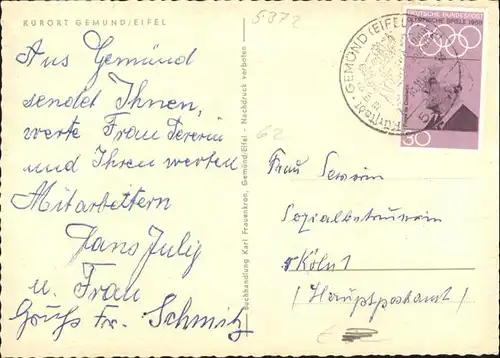 KURORT GEMÜND/EIFEL
5372
Aus Gemünd
sendet Ihnen,
werte Frau Severin
und Ihren werten
Mitarbeitern
Hans July
u. Frau
Gruß Fr. Schmitz
Buchhandlung Karl Frauenkron, Gemünd/Eifel - Nachdruck verboten
62
GEMÜND (EIFEL)
DEUTSCHE BUNDESPOST
OLYMPISCHE SPIELE 1968
30
Frau Severin
Sozialbetreuerin
5 Köln 1
(Hauptpostamt)